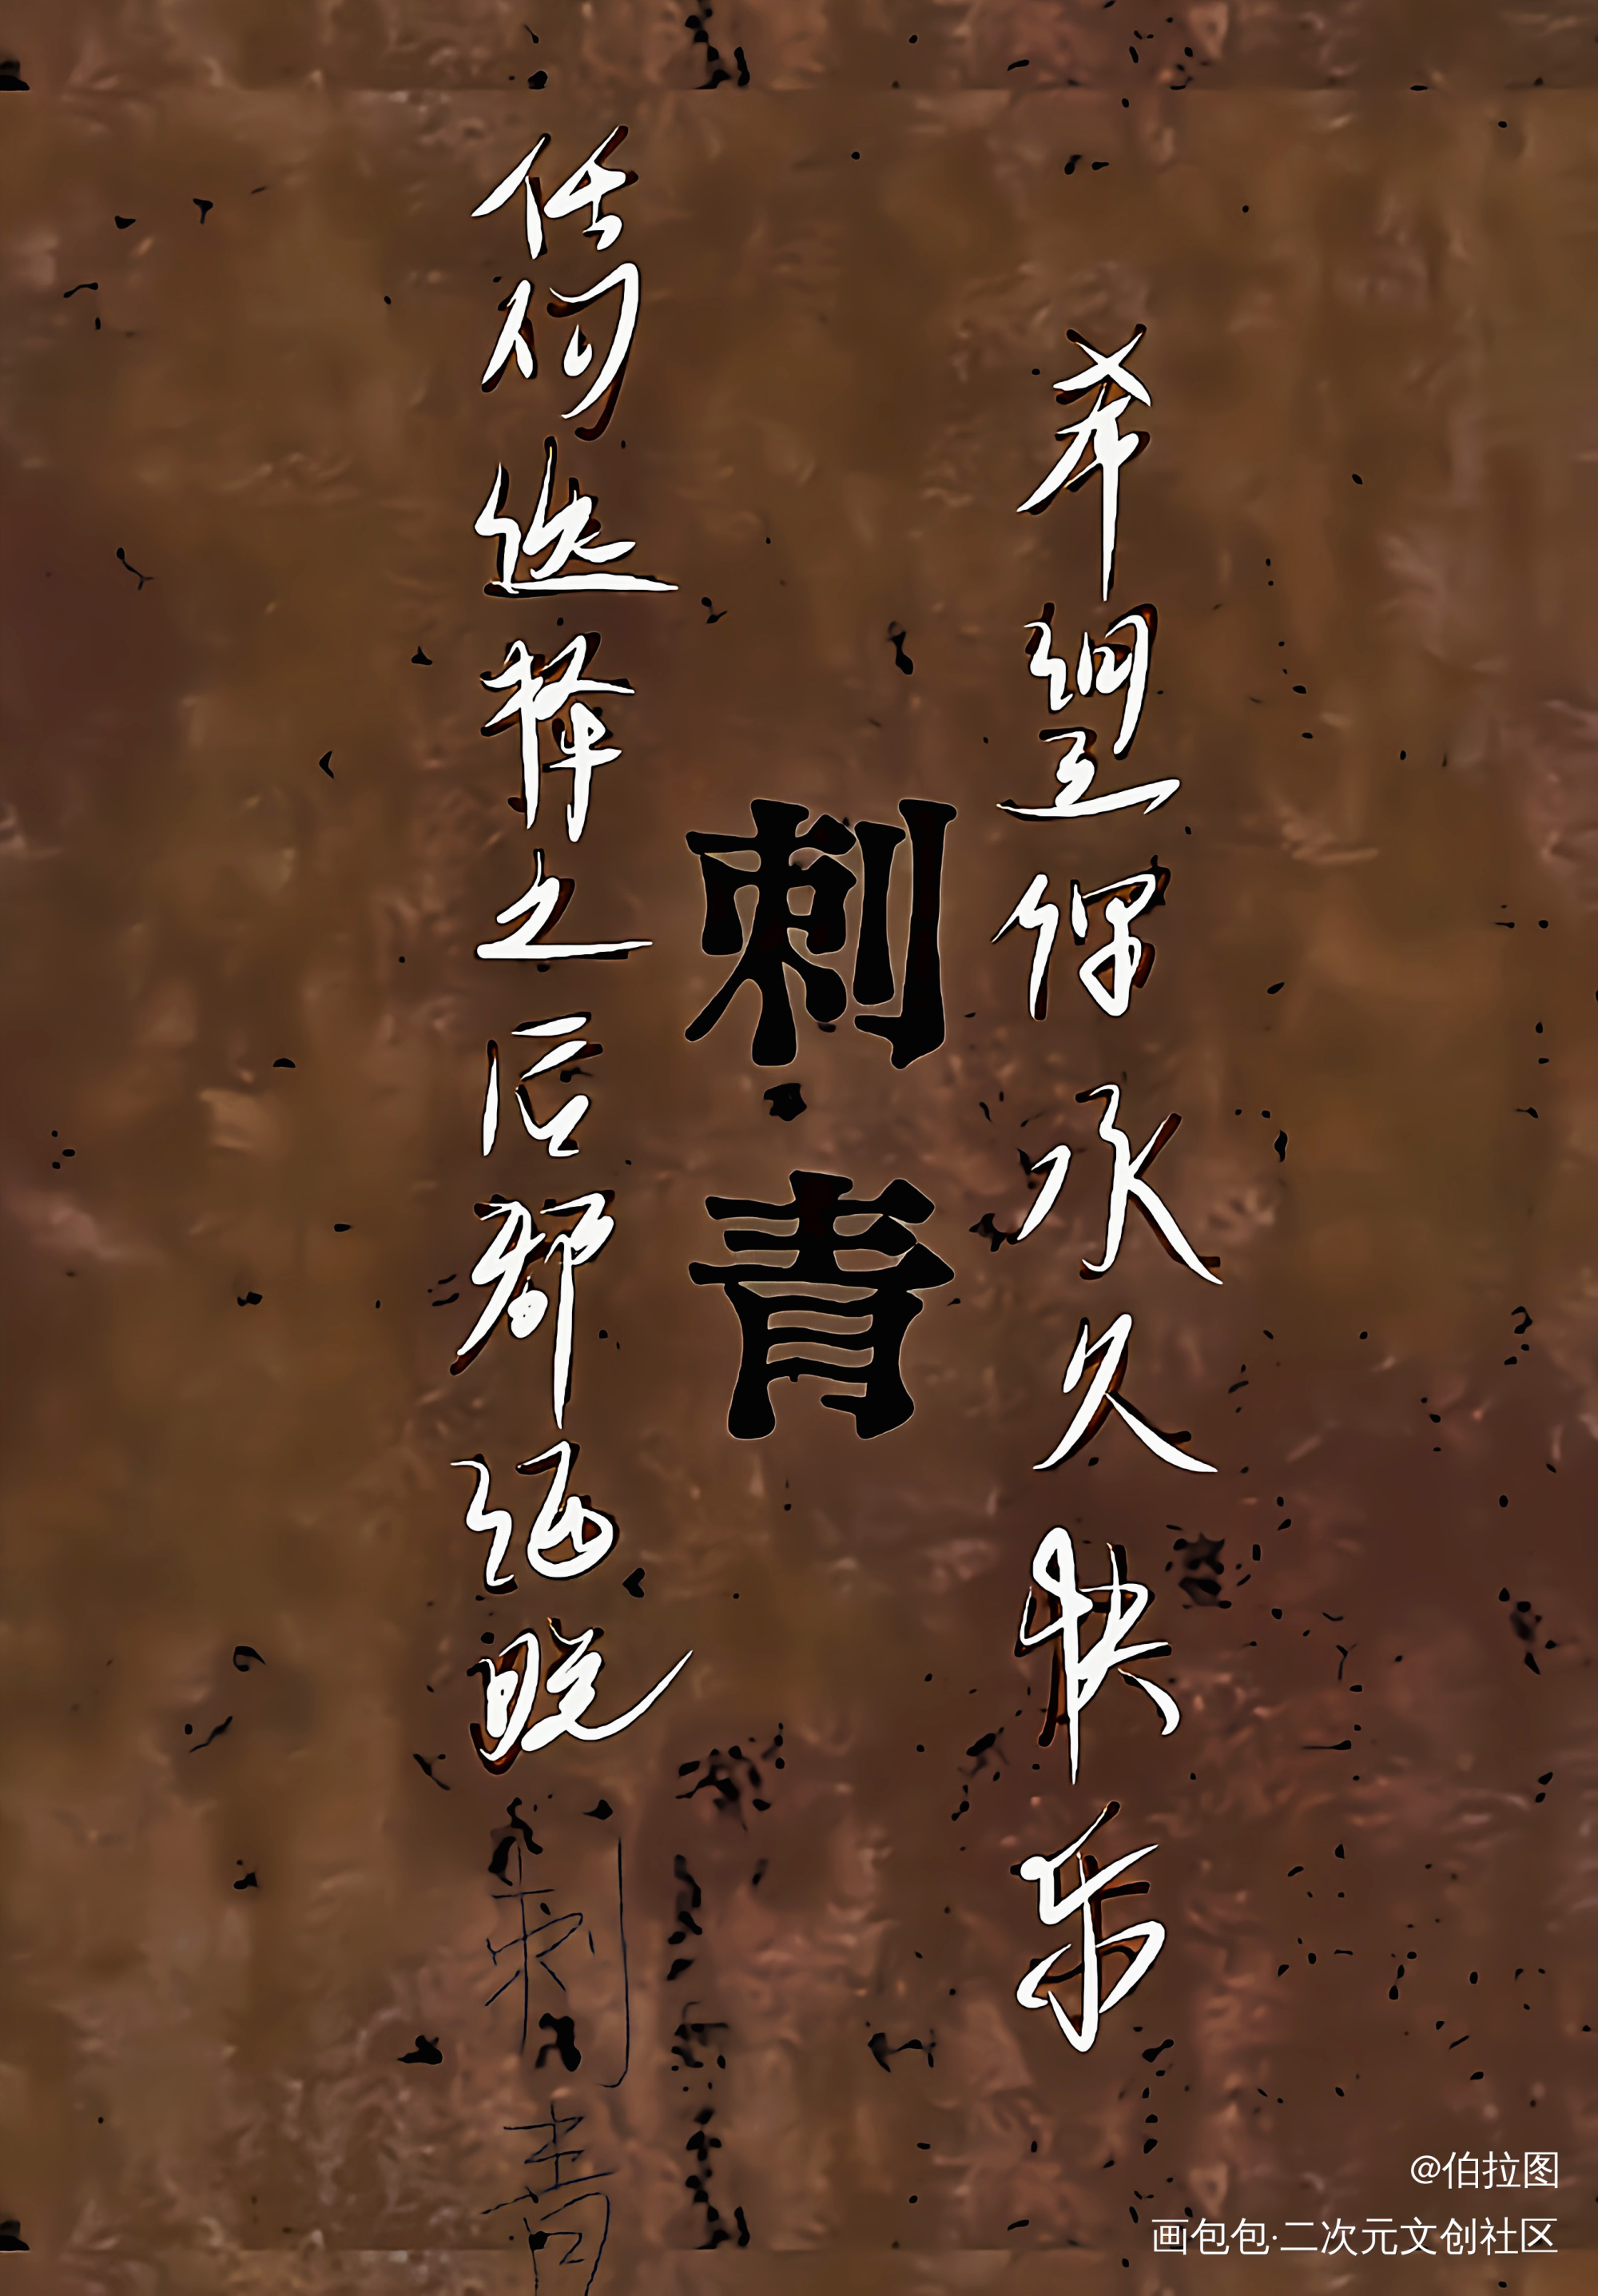 希望永久快乐
刺青
任何选择之后都晚
刺青
@伯拉图
画包包·二次元文创社区